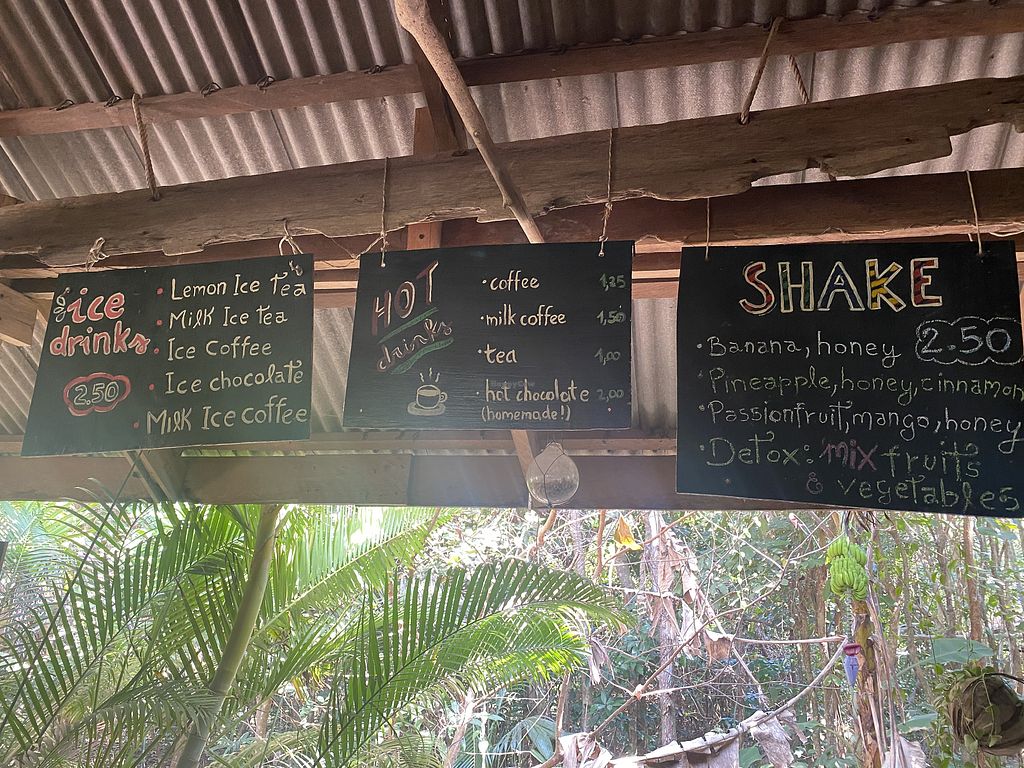 ice
drinks
2.50
• Lemon Ice tea
• Milk Ice tea
• Ice Coffee
• Ice chocolate
• Milk Ice coffee
HOT
drinks
• coffee 1,25
• milk coffee 1,50
• tea 1,00
• hot chocolate 2,00
(homemade!)
SHAKE
2.50
• Banana, honey
• Pineapple, honey, cinnamon
• Passionfruit, mango, honey
• Detox: mix fruits
& vegetables